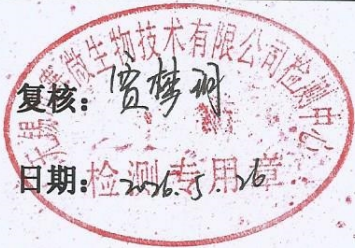 微生物技术有限公司检测中心
复核：贾梦玥
日期：2026.5.26
检测专用章